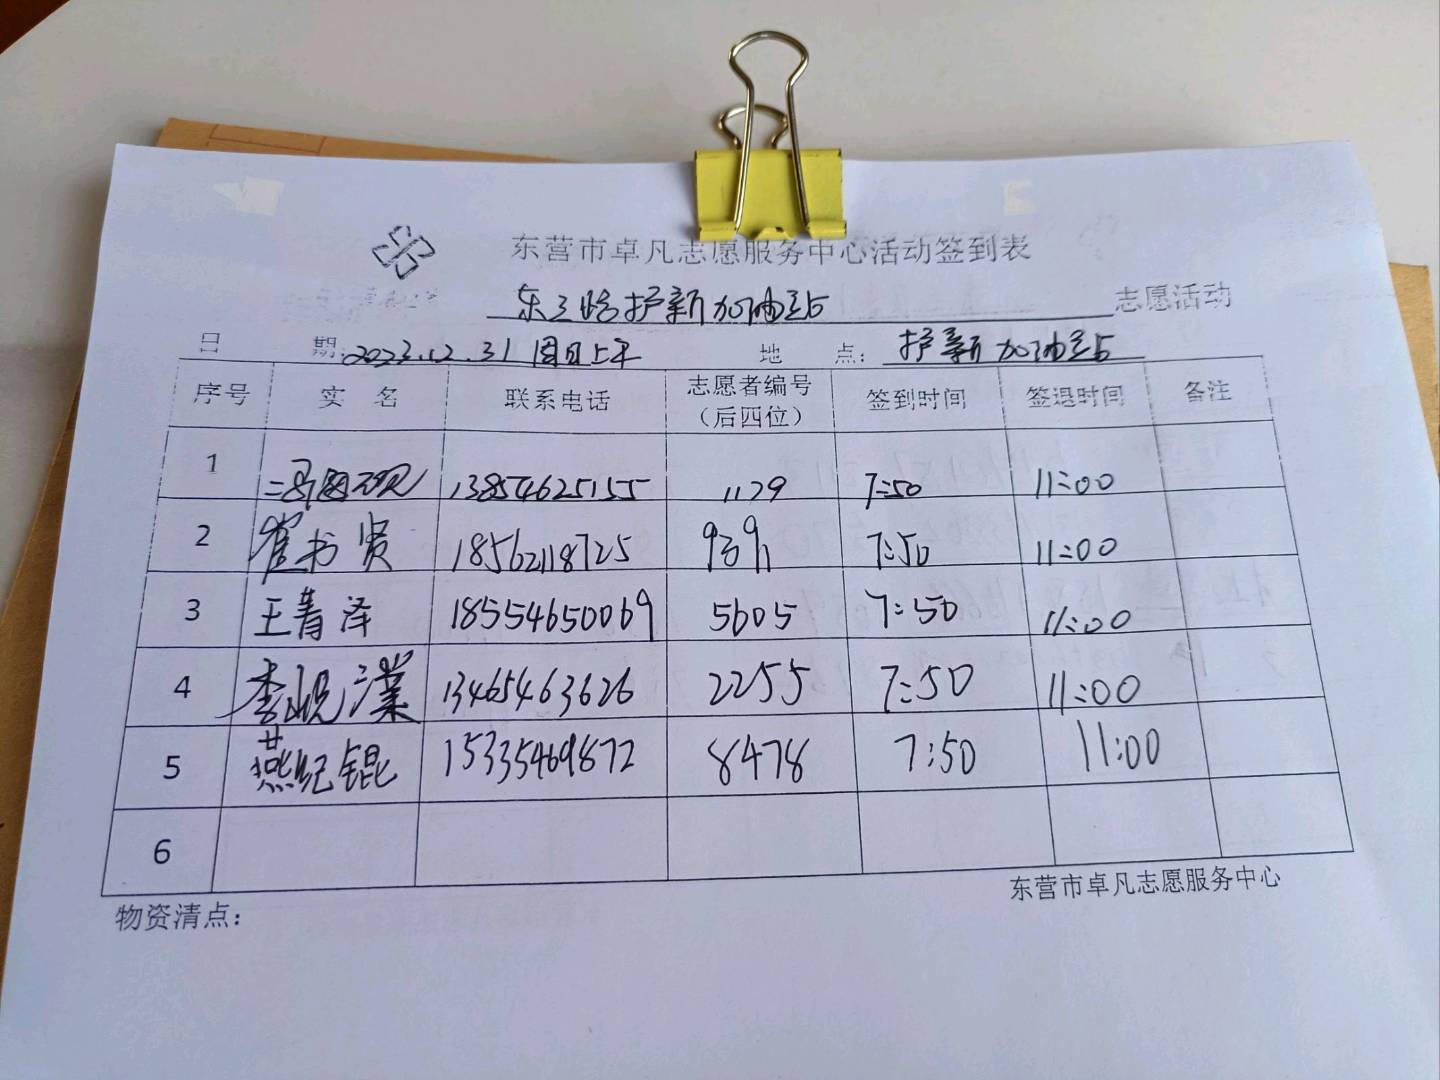 东营市卓凡志愿服务中心活动签到表
东三路护新加油站 志愿活动
日 期: 2023.12.31 周日上午 地 点: 护新加油站
序号 实 名 联系电话 志愿者编号（后四位） 签到时间 签退时间 备注
1 13854625155 1129 7:50 11:00
2 崔书贤 18562118725 9391 7:50 11:00
3 王菁泽 18554650069 5605 7:50 11:00
4 李岘濛 13465463626 2255 7:50 11:00
5 燕纪锟 15335469872 8478 7:50 11:00
6
东营市卓凡志愿服务中心
物资清点: